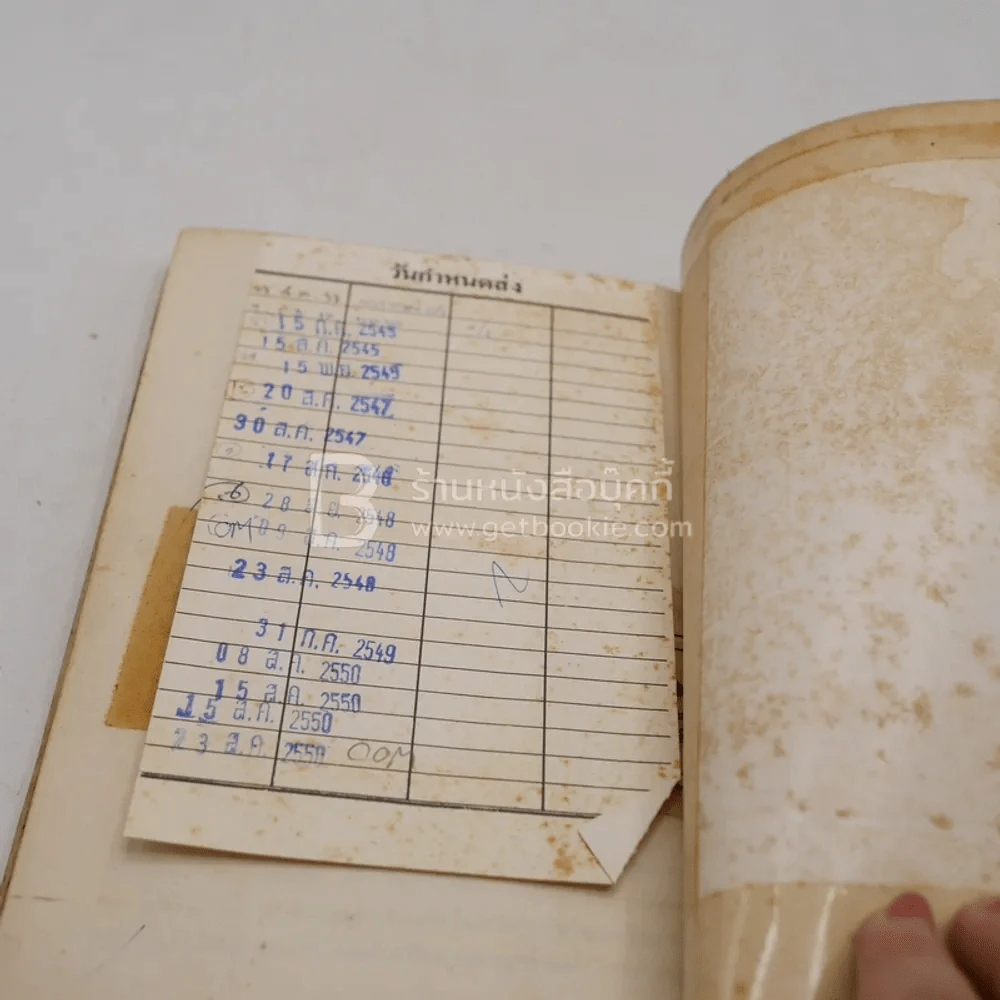 วันกำหนดส่ง
15 ก.ค. 2545
15 ส.ค. 2545
15 พ.ย. 2545
20 ส.ค. 2547
30 ส.ค. 2547
17 ส.ค. 2548
28 2548
ร้านหนังสือบุ๊คกี้
www.getbookie.com
OM 09 ส.ค. 2548
23 ส.ค. 2548
N
31 ก.ค. 2549
08 ส.ค. 2550
15 ส.ค. 2550
15 ส.ค. 2550
23 ส.ค. 2550 OOM